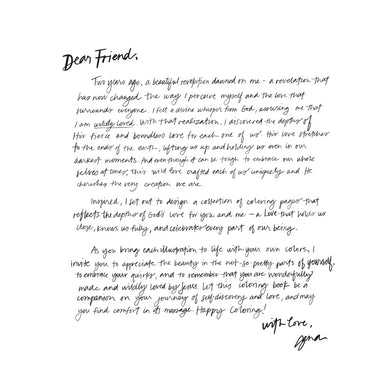 Dear Friend,
Two years ago, a beautiful revelation dawned on me - a revelation that
has now changed the way I perceive myself and the love that
surrounds everyone. I felt a divine whisper from God, assuring me that
I am wildly loved. With that realization, I discovered the depths of
His fierce and boundless love for each one of us. His love stretches
to the ends of the earth, lifting us up and holding us even in our
darkest moments. And even though it can be tough to embrace our whole
selves at times, this wild love crafted each of us uniquely and He
cherishes the very creation we are.
Inspired, I set out to design a collection of coloring pages that
reflects the depths of God's love for you and me - a love that holds us
close, knows us fully, and celebrates every part of our being.
As you bring each illustration to life with your own colors, I
invite you to appreciate the beauty in the not-so pretty parts of yourself,
to embrace your quirks, and to remember that you are wonderfully
made and wildly loved by Jesus. Let this coloring book be a
companion on your journey of self-discovery and love, and may
you find comfort in its message. Happy Coloring!
With love,